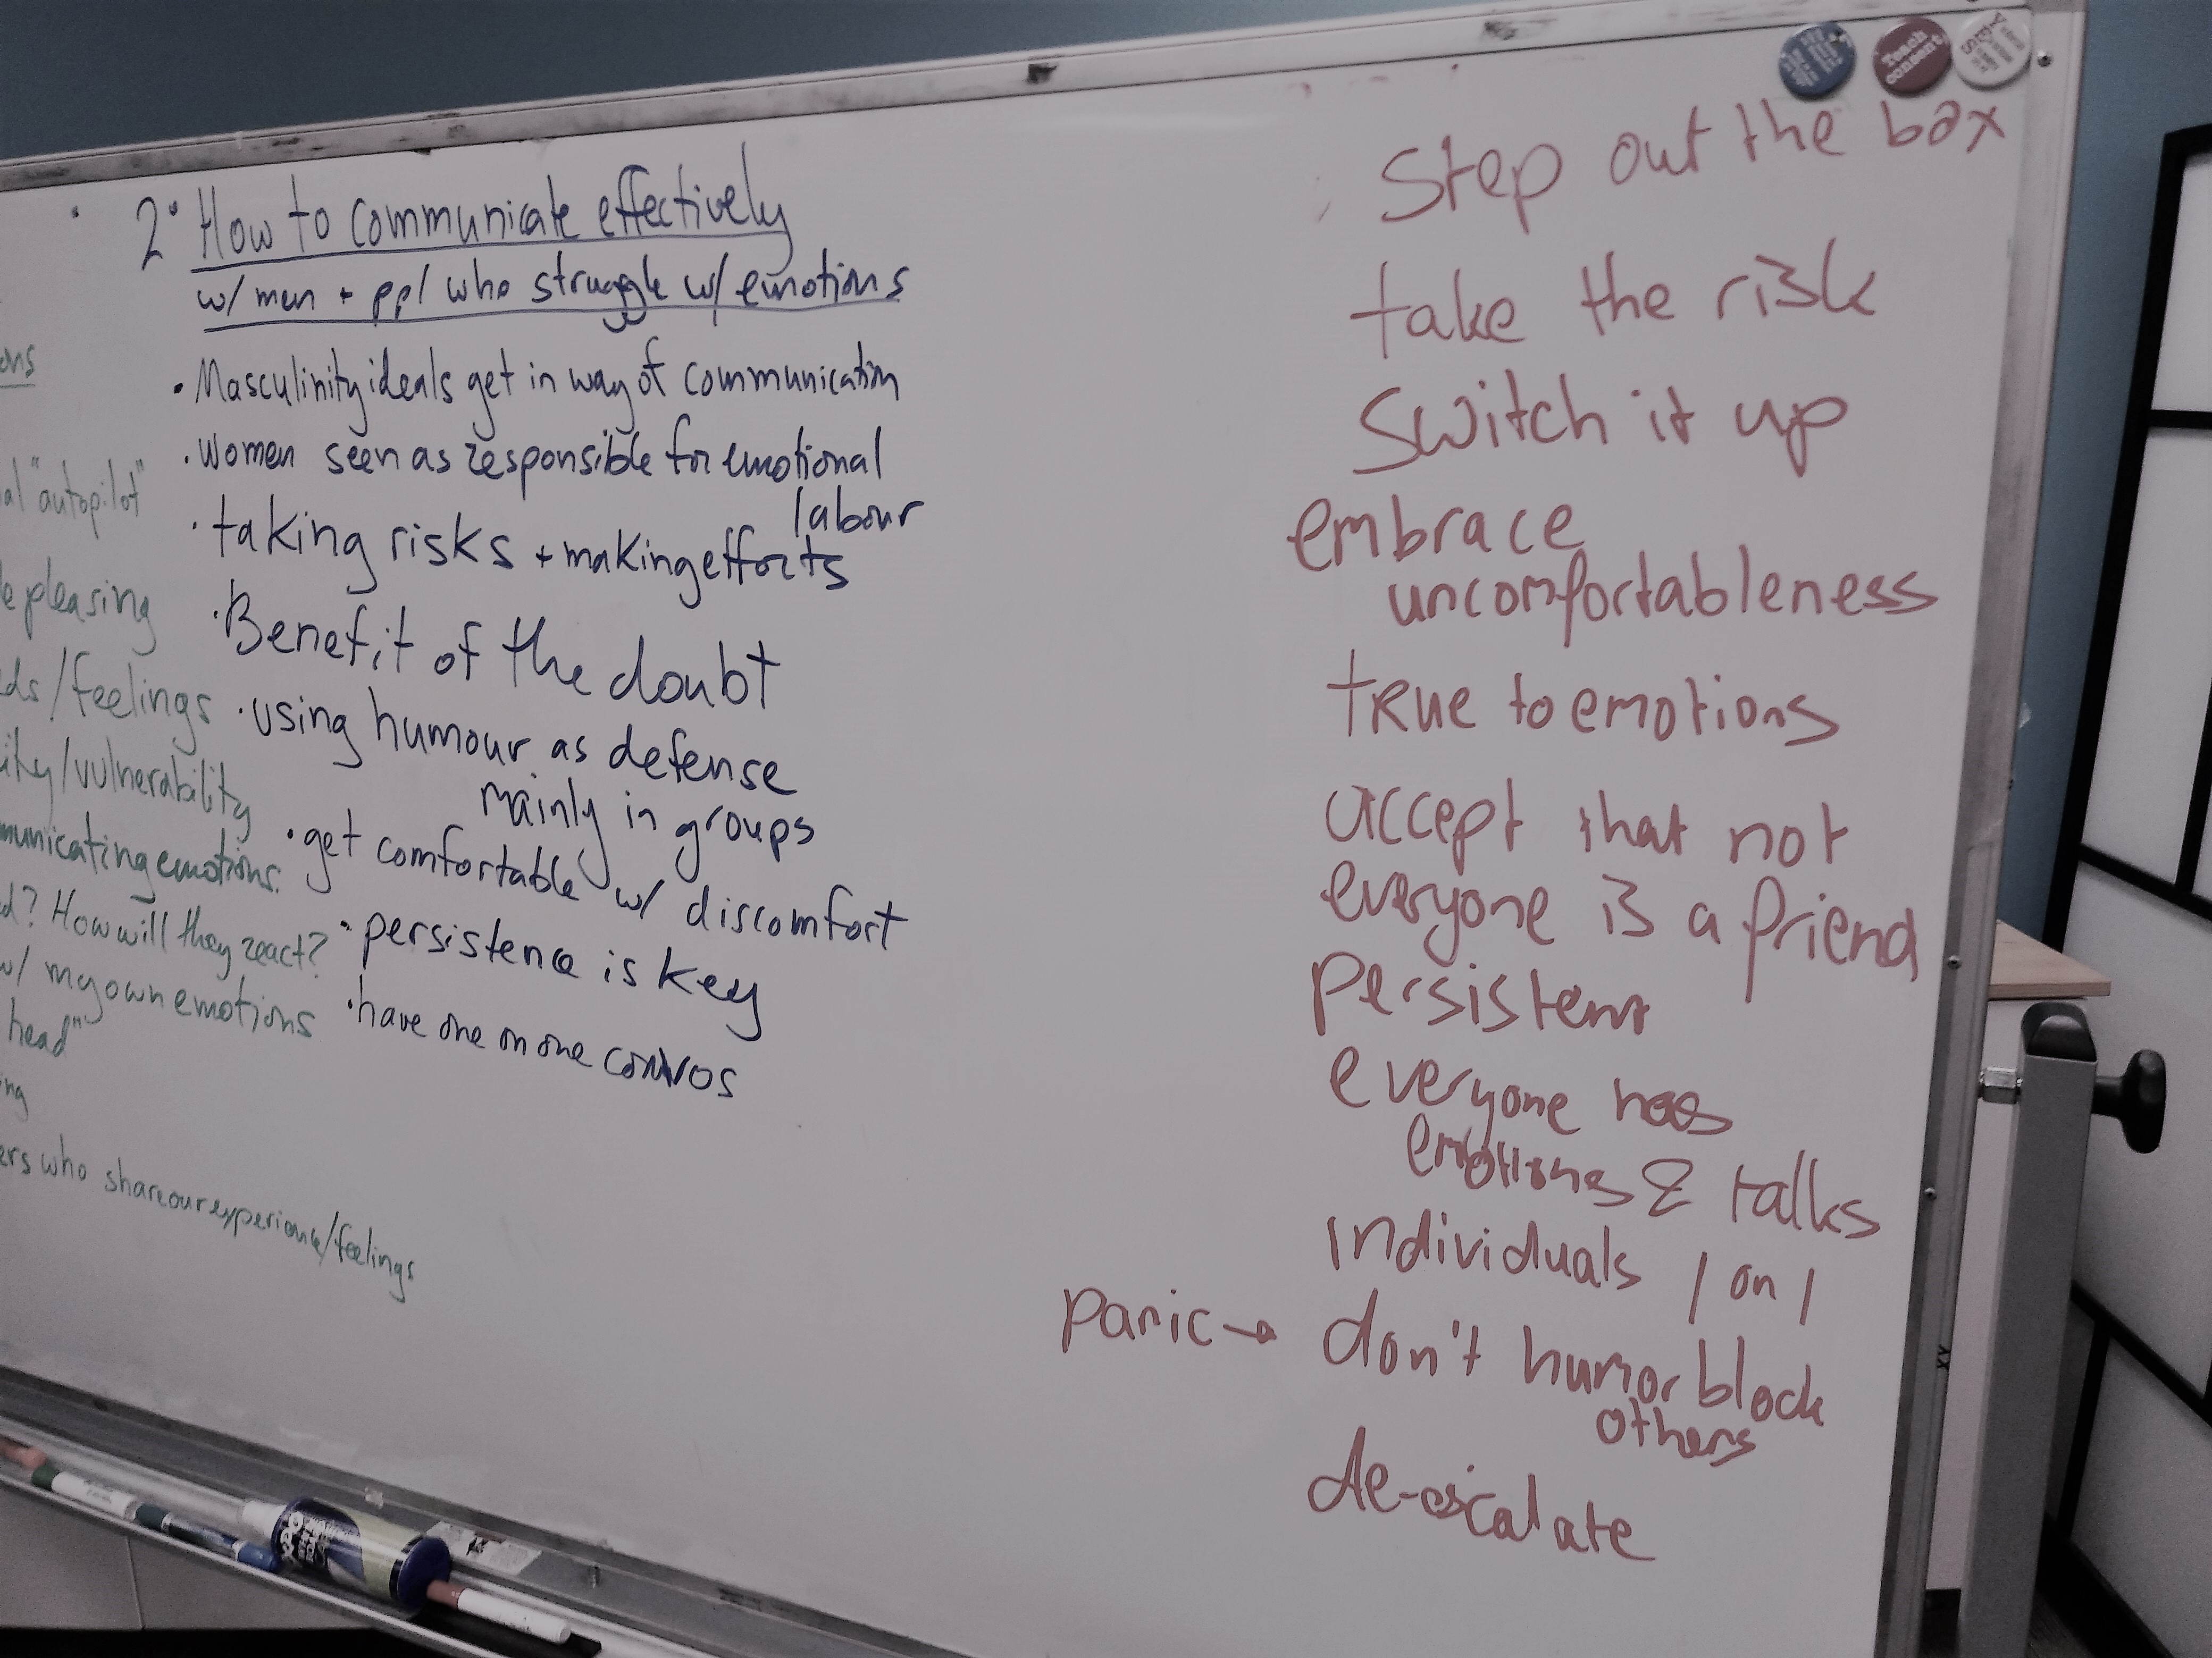 ons
al "autopilot"
e pleasing
ds/feelings
ity/vulnerability
municating emotions.
d? How will they react?
w/ my own emotions
head"
ng
ers who share our experience/feelings
2. How to communicate effectively
w/ men + ppl who struggle w/ emotions
• Masculinity ideals get in way of communication
• Women seen as responsible for emotional
labour
• taking risks + making efforts
• Benefit of the doubt
• using humour as defense
mainly in groups
• get comfortable w/ discomfort
• persistence is key
• have one on one convos
Teach
consent
Step out the box
take the risk
Switch it up
embrace
uncomfortableness
true to emotions
accept that not
everyone is a friend
persistent
everyone has
emotions & talks
individuals 1 on 1
panic → don't humor block
others
de-escalate